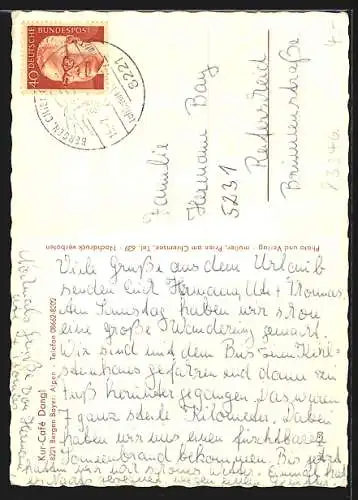 40 DEUTSCHE BUNDESPOST
8221
BERGEN, CHIEMGAU
4-
Familie
Hermann Bay
5231
Reiferscheid
Brunnenstraße
Photo und Verlag · müller, Prien am Chiemsee, Tel. 639 · Nachdruck verboten
Kur-Café Dangl
8221 Bergen Bayer. Alpen Telefon 08662-8202
Viele Grüße aus dem Urlaub
senden Euch Hermann, Ute + Thomas.
Am Samstag haben wir schon
eine große Wanderung gemacht.
Wir sind mit dem Bus zum
gefahren und dann zu
Fuß herunter gegangen. Das waren
7 ganz steile Kilometer. Dabei
haben wir uns einen furchtbaren
Sonnenbrand bekommen. Bis jetzt
haben wir schönes Wetter. Einmal hat
es nachts geregnet
Nochmals Grüße von Hermann
Ute + Thomas